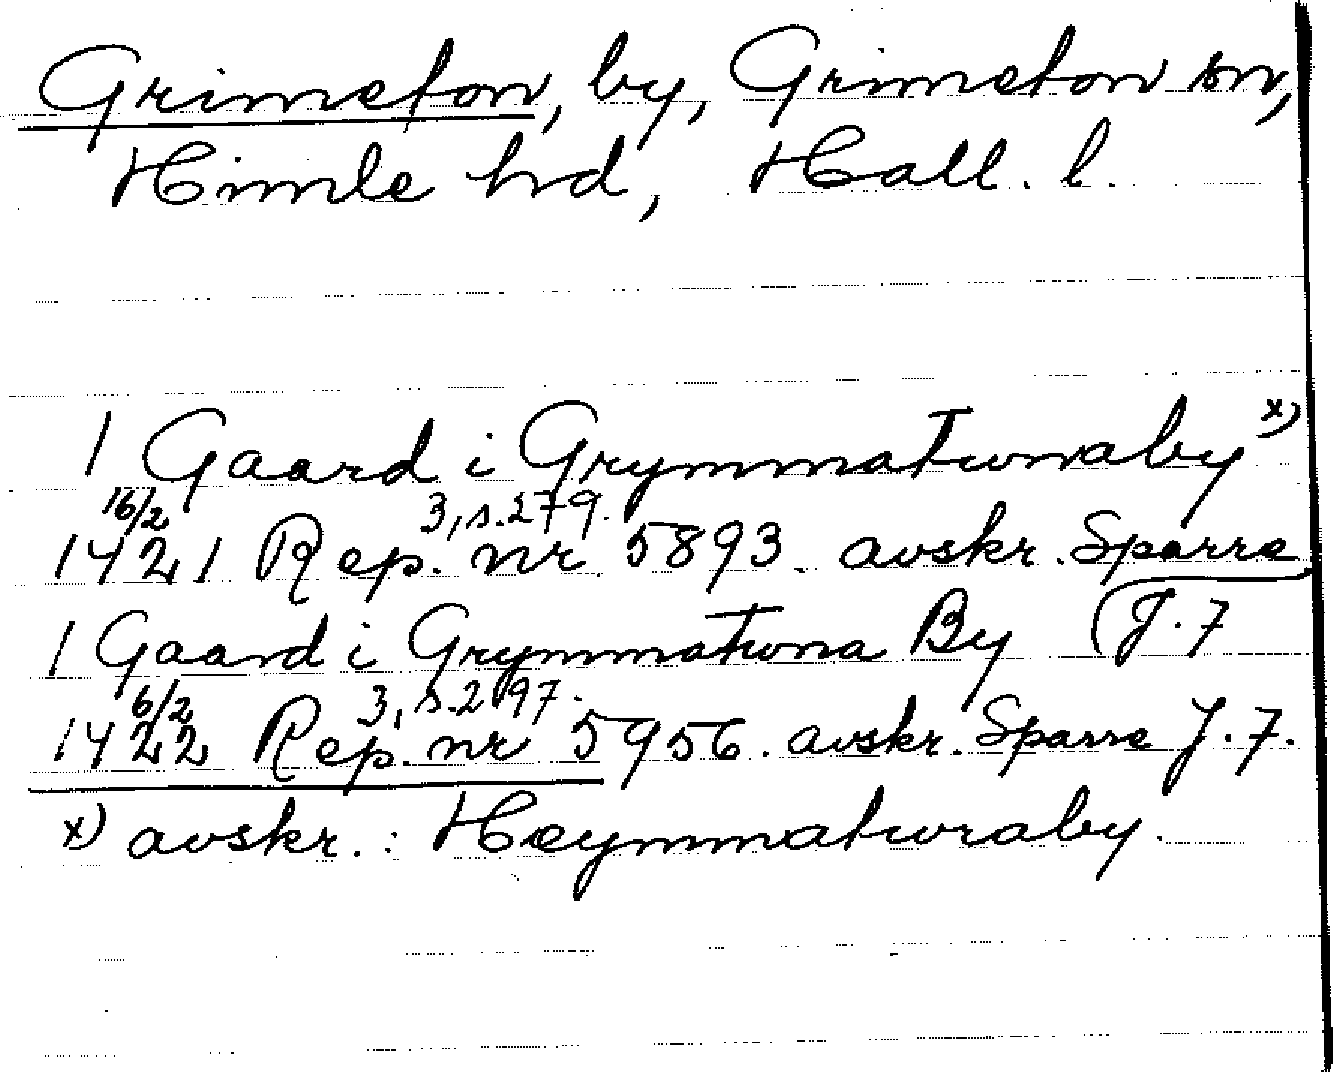 Grimeton, by, Grimeton sn,
Himle hd, Hall. l.
1 Gaard i Grymmatunaby x)
16/2 3, s. 279.
1421 Rep. nr 5893. avskr. Sparre
1 Gaard i Grymmatuna By (J. 7
6/2 3, s. 297.
1422 Rep. nr 5956. avskr. Sparre J. 7.
x) avskr. : Heymmaturaby.